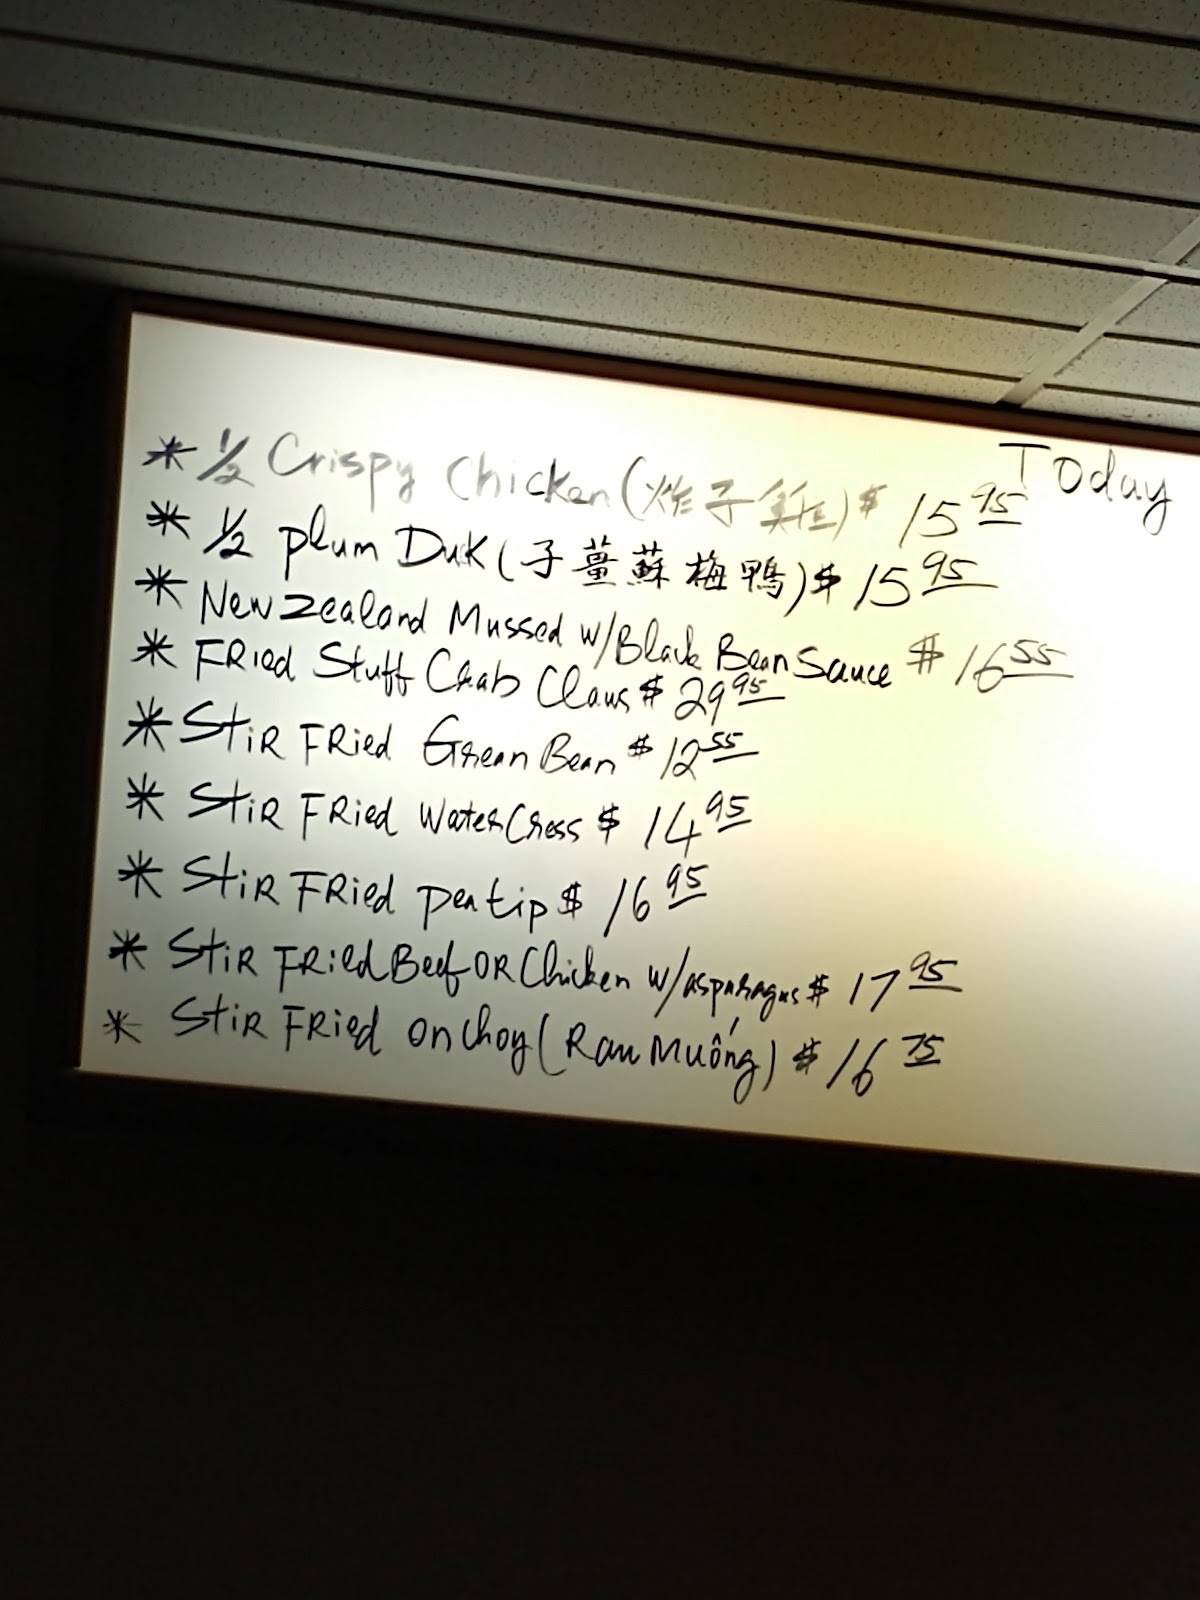 Today
* 1/2 Crispy Chicken (炸子雞) $ 15 95
* 1/2 Plum Duk (子薑蘇梅鴨) $ 15 95
* New Zealand Mussed w/Black Bean Sauce $ 16 55
* FRied Stuff Crab Claws $ 29 95
* StiR FRied Green Bean $ 12 55
* StiR FRied Water Cress $ 14 95
* StiR FRied pea tip $ 16 95
* StiR FRied Beef OR Chicken w/asparagus $ 17 95
* StiR FRied on choy (Rau Muống) $ 16 75